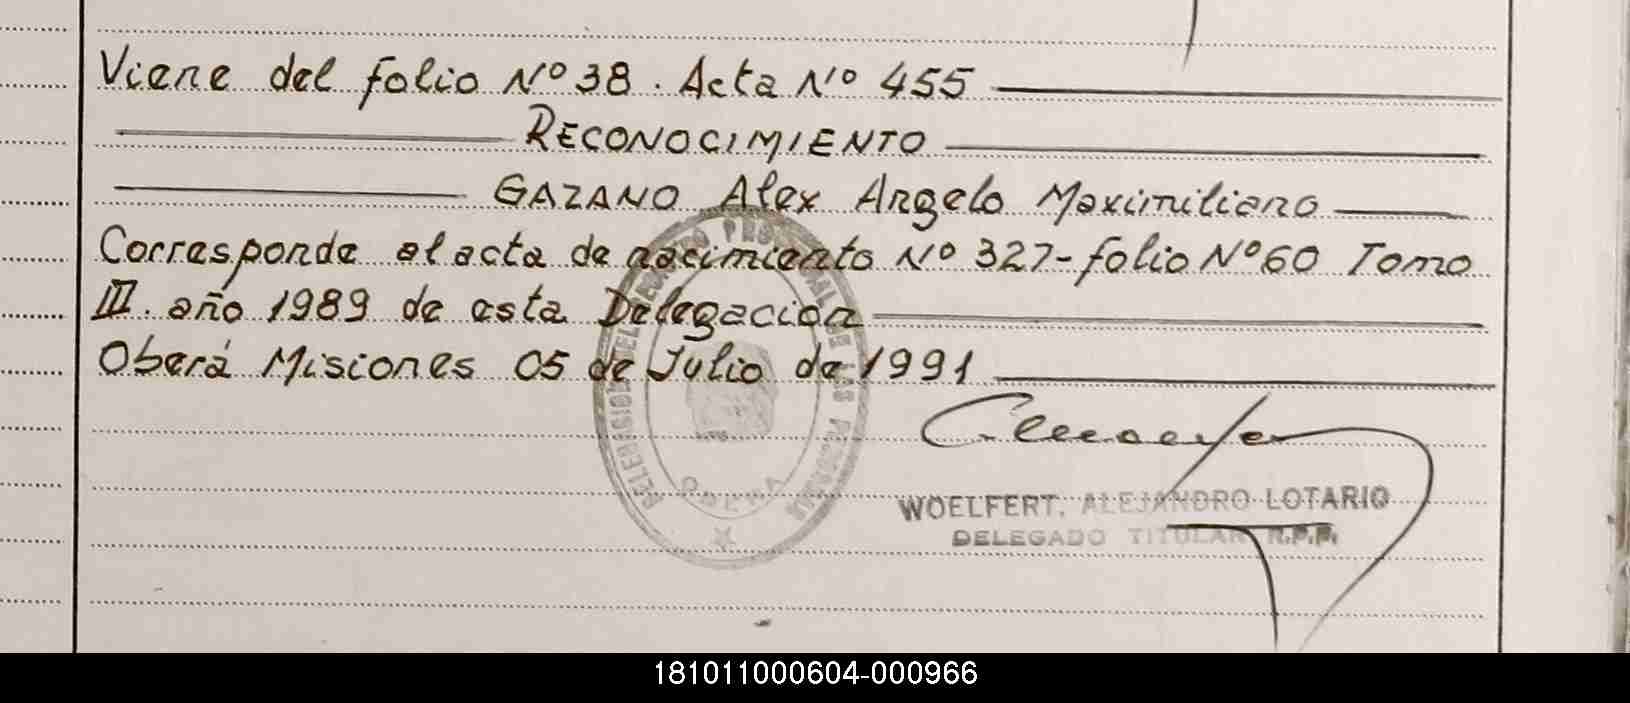 Viene del folio Nº 38. Acta Nº 455
RECONOCIMIENTO
GAZANO Alex Angelo Maximiliano
Corresponde al acta de nacimiento Nº 327-folio Nº 60 Tomo
III. año 1989 de esta Delegación
Oberá Misiones 05 de Julio de 1991
WOELFERT, ALEJANDRO LOTARIO
DELEGADO TITULAR R.P.P.
DELEGACION DEL REGISTRO PROVINCIAL DE LAS PERSONAS
OBERA
181011000604-000966